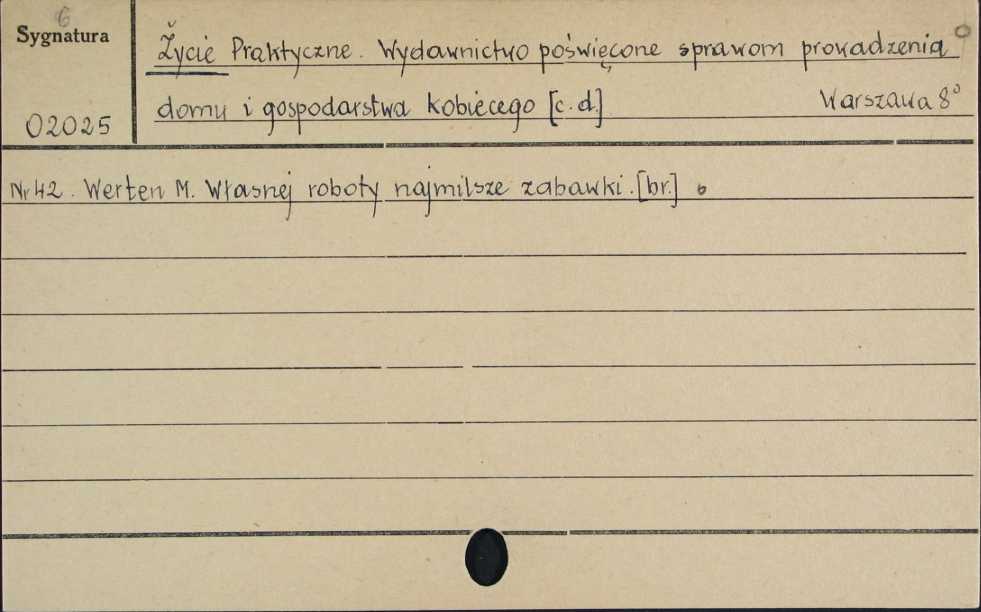 6
Sygnatura
02025
Życie Praktyczne. Wydawnictwo poświęcone sprawom prowadzenia
domu i gospodarstwa kobiecego [c.d.] Warszawa 8°
Nr 42. Werten M. Własnej roboty najmilsze zabawki. [br.]